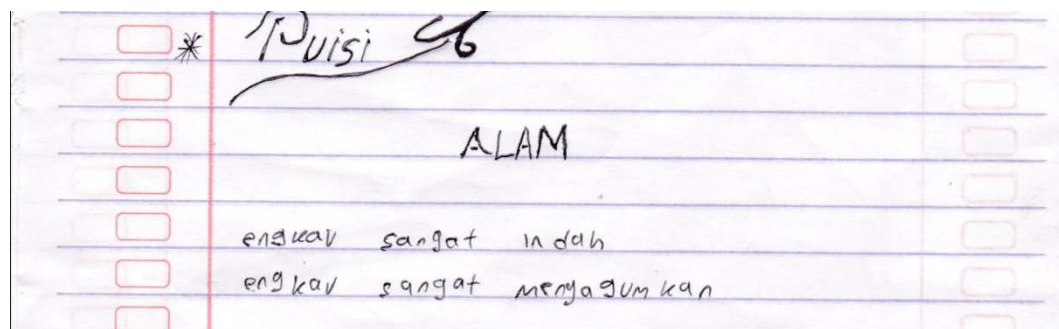 * Puisi
ALAM
engkau sangat indah
engkau sangat menyagumkan